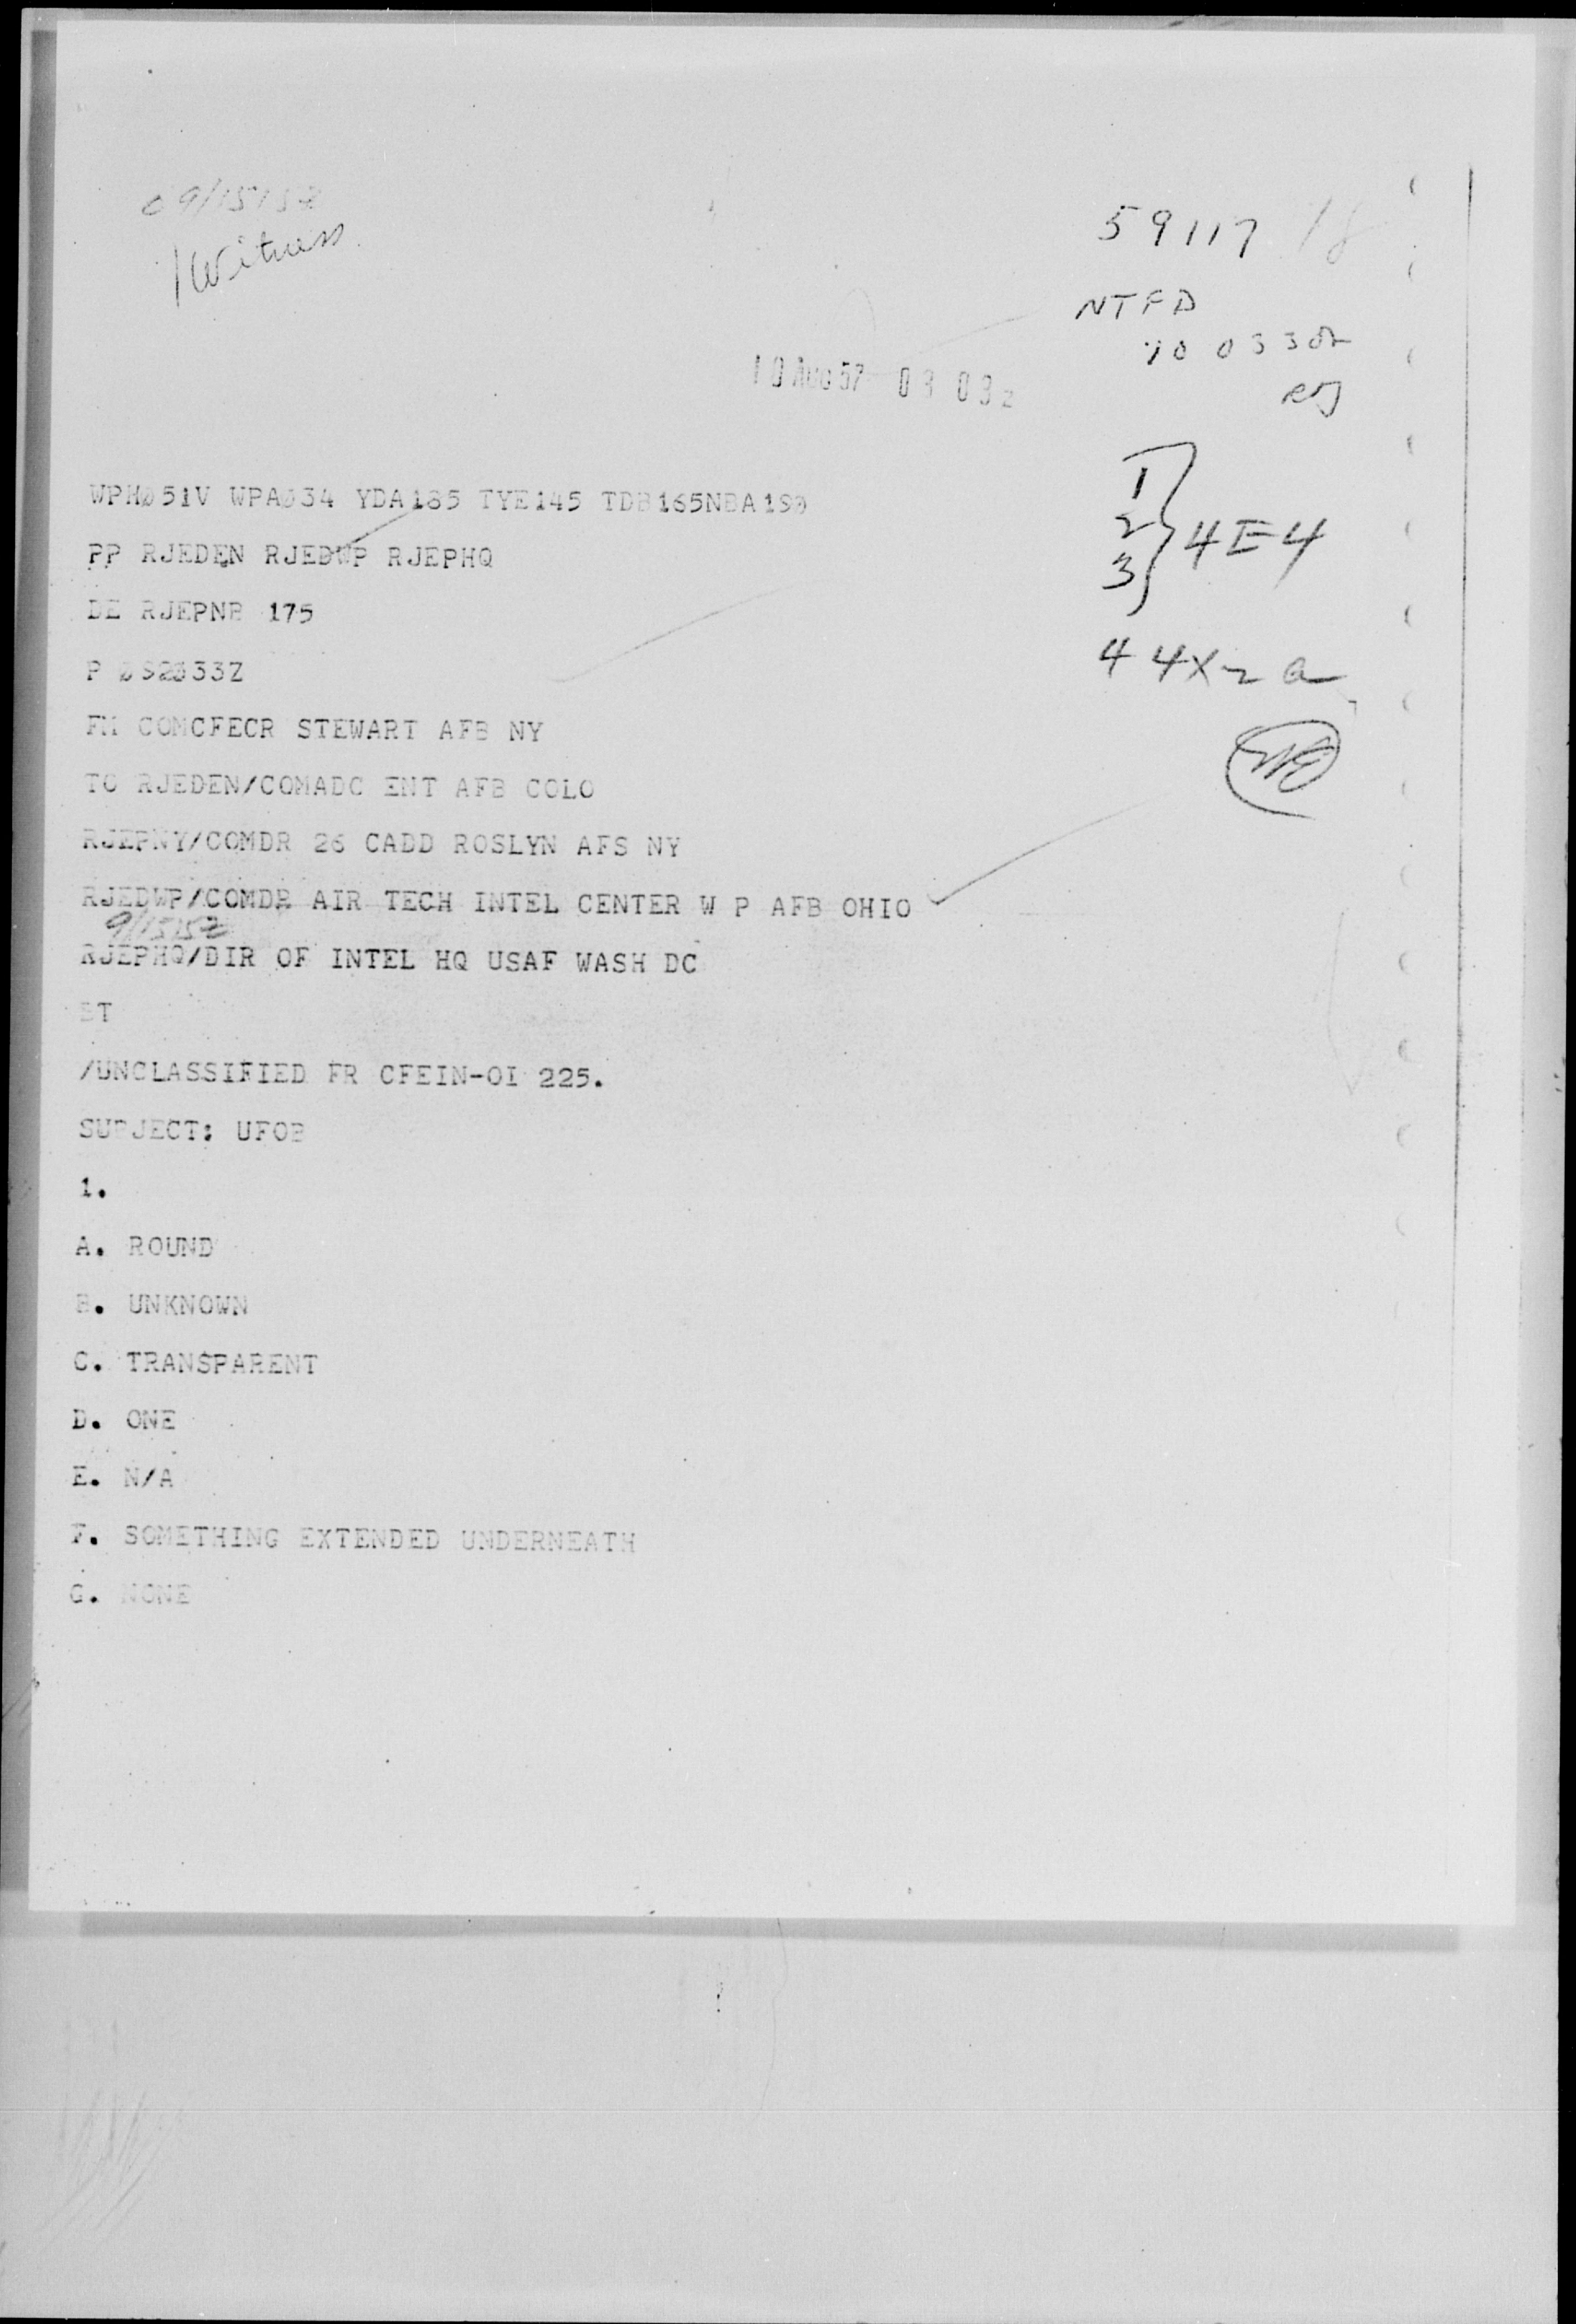 1 Witness
59117 18
NTFD
10 0330Z
10 AUG 57 03 03z
1
2
3
4E4
4 4X2 a
WPHØ51V WPAØ34 YDA185 TYE145 TDB165NBA190
PP RJEDEN RJEDWP RJEPHQ
DE RJEPNB 175
P Ø92Ø33Z
FM COMCFECR STEWART AFB NY
TO RJEDEN/COMADC ENT AFB COLO
RJEPNY/COMDR 26 CADD ROSLYN AFS NY
RJEDWP/COMDR AIR TECH INTEL CENTER W P AFB OHIO
RJEPHQ/DIR OF INTEL HQ USAF WASH DC
BT
/UNCLASSIFIED FR CFEIN-OI 225.
SUBJECT: UFOB
1.
A. ROUND
B. UNKNOWN
C. TRANSPARENT
D. ONE
E. N/A
F. SOMETHING EXTENDED UNDERNEATH
G. NONE